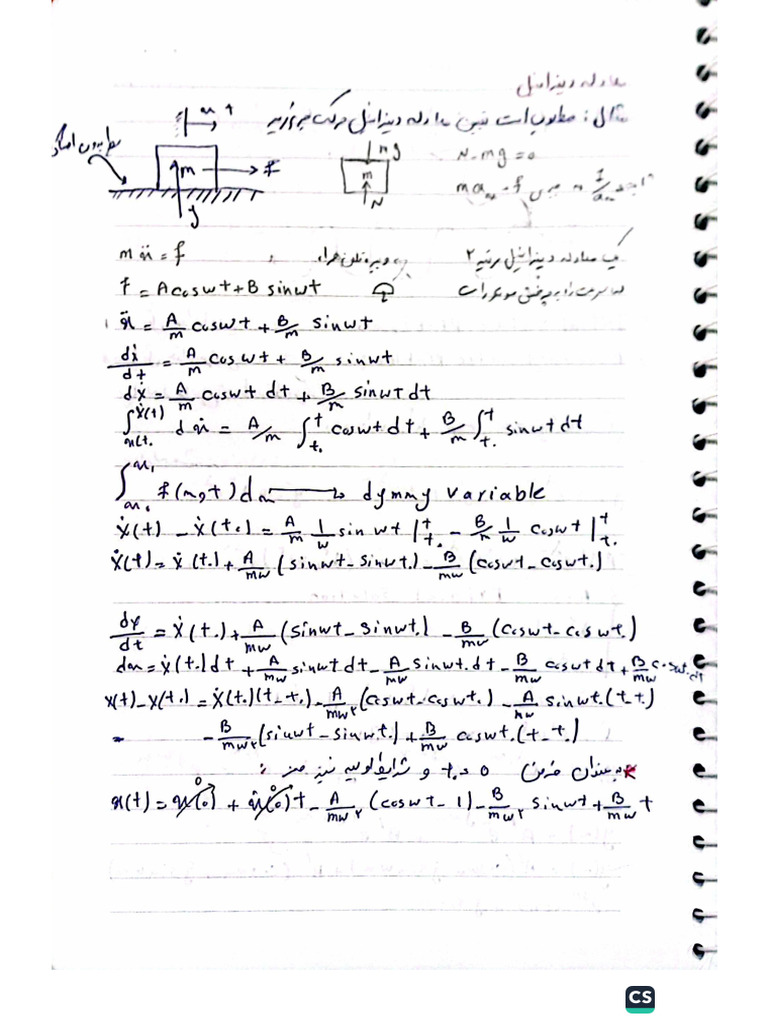 معادله دیفرانسیل
مثال: مطلوب است تعیین معادله دیفرانسیل حرکت جرم زیر
x +
m → F
y
mg
m
N
N - mg = 0
m a_x = f
mẍ = f
یک معادله دیفرانسیل مرتبه ۲
f = A cos wt + B sin wt
ẍ = A/m cos wt + B/m sin wt
dẋ/dt = A/m cos wt + B/m sin wt
dẋ = A/m cos wt dt + B/m sin wt dt
∫_{ẋ(t.)}^{ẋ(t)} dẋ = A/m ∫_{t.}^{t} cos wt dt + B/m ∫_{t.}^{t} sin wt dt
∫ f(m, t) dm → dymmy variable
ẋ(t) - ẋ(t.) = A/m 1/w sin wt |_{t.}^{t} - B/m 1/w cos wt |_{t.}^{t}
ẋ(t) = ẋ(t.) + A/mw (sin wt - sin wt.) - B/mw (cos wt - cos wt.)
dx/dt = ẋ(t.) + A/mw (sin wt - sin wt.) - B/mw (cos wt - cos wt.)
dx = ẋ(t.) dt + A/mw sin wt dt - A/mw sin wt. dt - B/mw cos wt dt + B/mw cos wt. dt
x(t) - x(t.) = ẋ(t.)(t - t.) - A/mw² (cos wt - cos wt.) - A/mw sin wt. (t - t.)
- B/mw² (sin wt - sin wt.) + B/mw cos wt. (t - t.)
* به عنوان فرض t. = 0 و شرایط اولیه نیز صفر :
x(t) = x(0) 0 + ẋ(0) 0 t - A/mw² (cos wt - 1) - B/mw² sin wt + B/mw t
CS